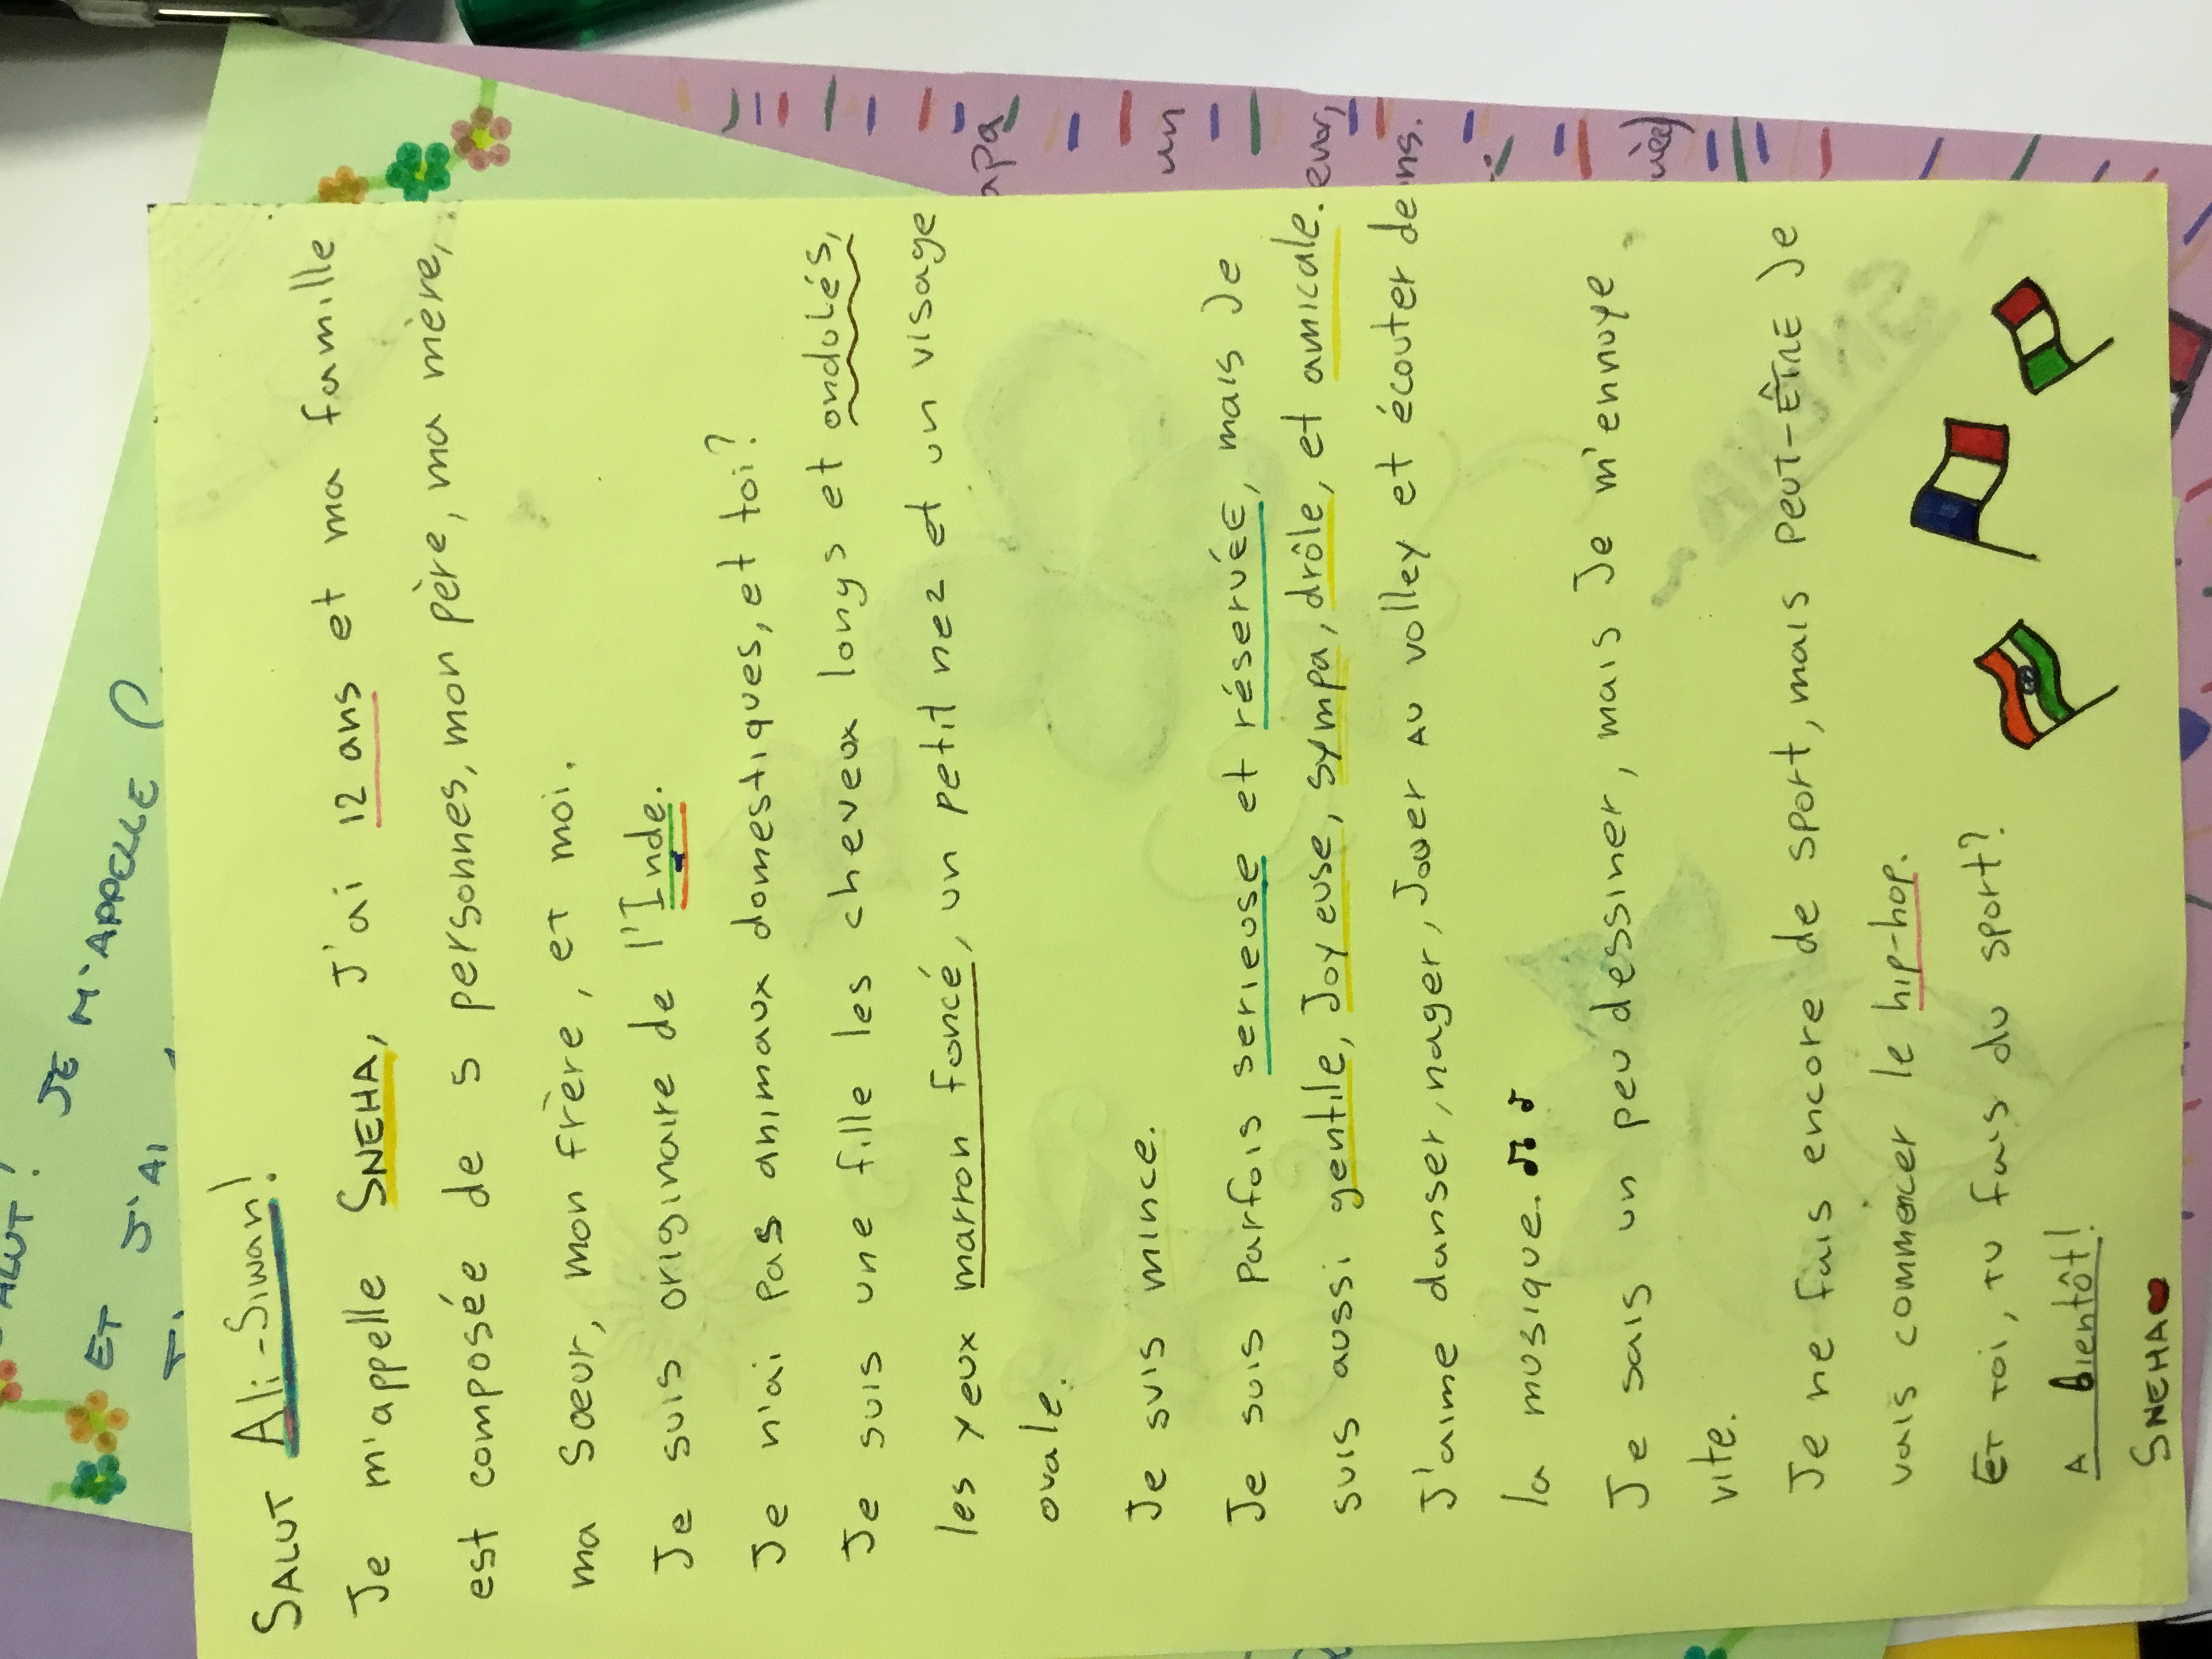 SALUT Ali-Siwan!
Je m'appelle SNEHA, J'ai 12 ans et ma famille
est composée de 5 personnes, mon père, ma mère,
ma sœur, mon frère, et moi.
Je suis originaire de l'Inde.
Je n'ai pas animaux domestiques, et toi?
Je suis une fille les cheveux longs et ondulés,
les yeux marron foncé, un petit nez et un visage
ovale.
Je suis mince.
Je suis parfois serieuse et réservéE, mais Je
suis aussi gentille, Joyeuse, sympa, drôle, et amicale.
J'aime danser, nager, Jouer au volley et écouter de
la musique.
Je sais un peu dessiner, mais Je m'ennuye
vite.
Je ne fais encore de sport, mais peut-Être Je
vais commencer le hip-hop.
Et toi, tu fais du sport?
A bientôt!
SNEHA
JE M'APPELLE
ET J'AI
apa
un
eur,
ns.